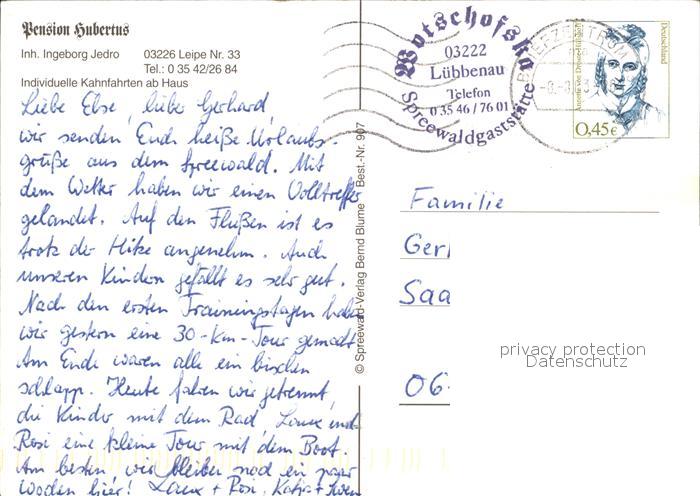 Pension Hubertus
Inh. Ingeborg Jedro 03226 Leipe Nr. 33
Tel.: 0 35 42/26 84
Individuelle Kahnfahrten ab Haus
Liebe Else, lieber Gerhard,
wir senden Euch heiße Urlaubs-
grüße aus dem Spreewald. Mit
dem Wetter haben wir einen Volltreffer
gelandet. Auf den Flußen ist es
trotz der Hitze angenehm. Auch
unseren Kindern gefällt es sehr gut.
Nach den ersten Trainingstagen haben
wir gestern eine 30-Km-Tour gemacht.
Am Ende waren alle ein bischen
schlapp. Heute fahren wir getrennt,
die Kinder mit dem Rad, und
Rosi eine kleine Tour mit dem Boot.
Am besten wir bleiben noch ein paar
Wochen hier! + Rosi, Katja +
© Spreewald-Verlag Bernd Blume Best.-Nr. 907
Wotschofska
03222
Lübbenau
Telefon
0 35 46 / 76 01
Spreewaldgaststätte
BRIEFZENTRUM
Annette von Droste-Hülshoff
Deutschland
0,45€
Familie
Ger
Saa
06
privacy protection
Datenschutz